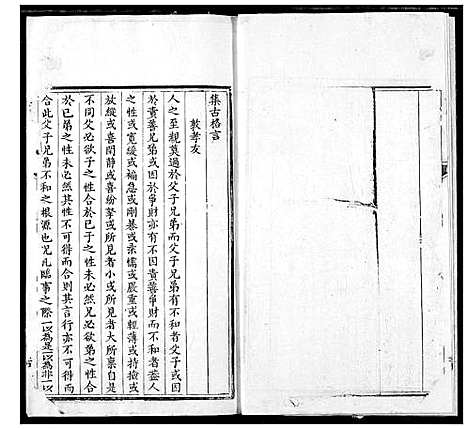 集古格言
敦孝友
人之至親莫過於父子兄弟而父子兄弟有不和者父子或因
於責善兄弟或因於爭財亦有不因責善爭財而不和者蓋人
之性或寬緩或褊急或剛暴或柔懦或嚴重或輕薄或持撿或
放縱或喜閒靜或喜紛拏或所見者小或所見者大所稟自是
不同父必欲子之性合於己子之性未必然兄必欲弟之性合
於己弟之性未必然其性不可得而合則其言行亦不可得而
合此父子兄弟不和之根源也况凡臨事之際一以為是一以為非一以